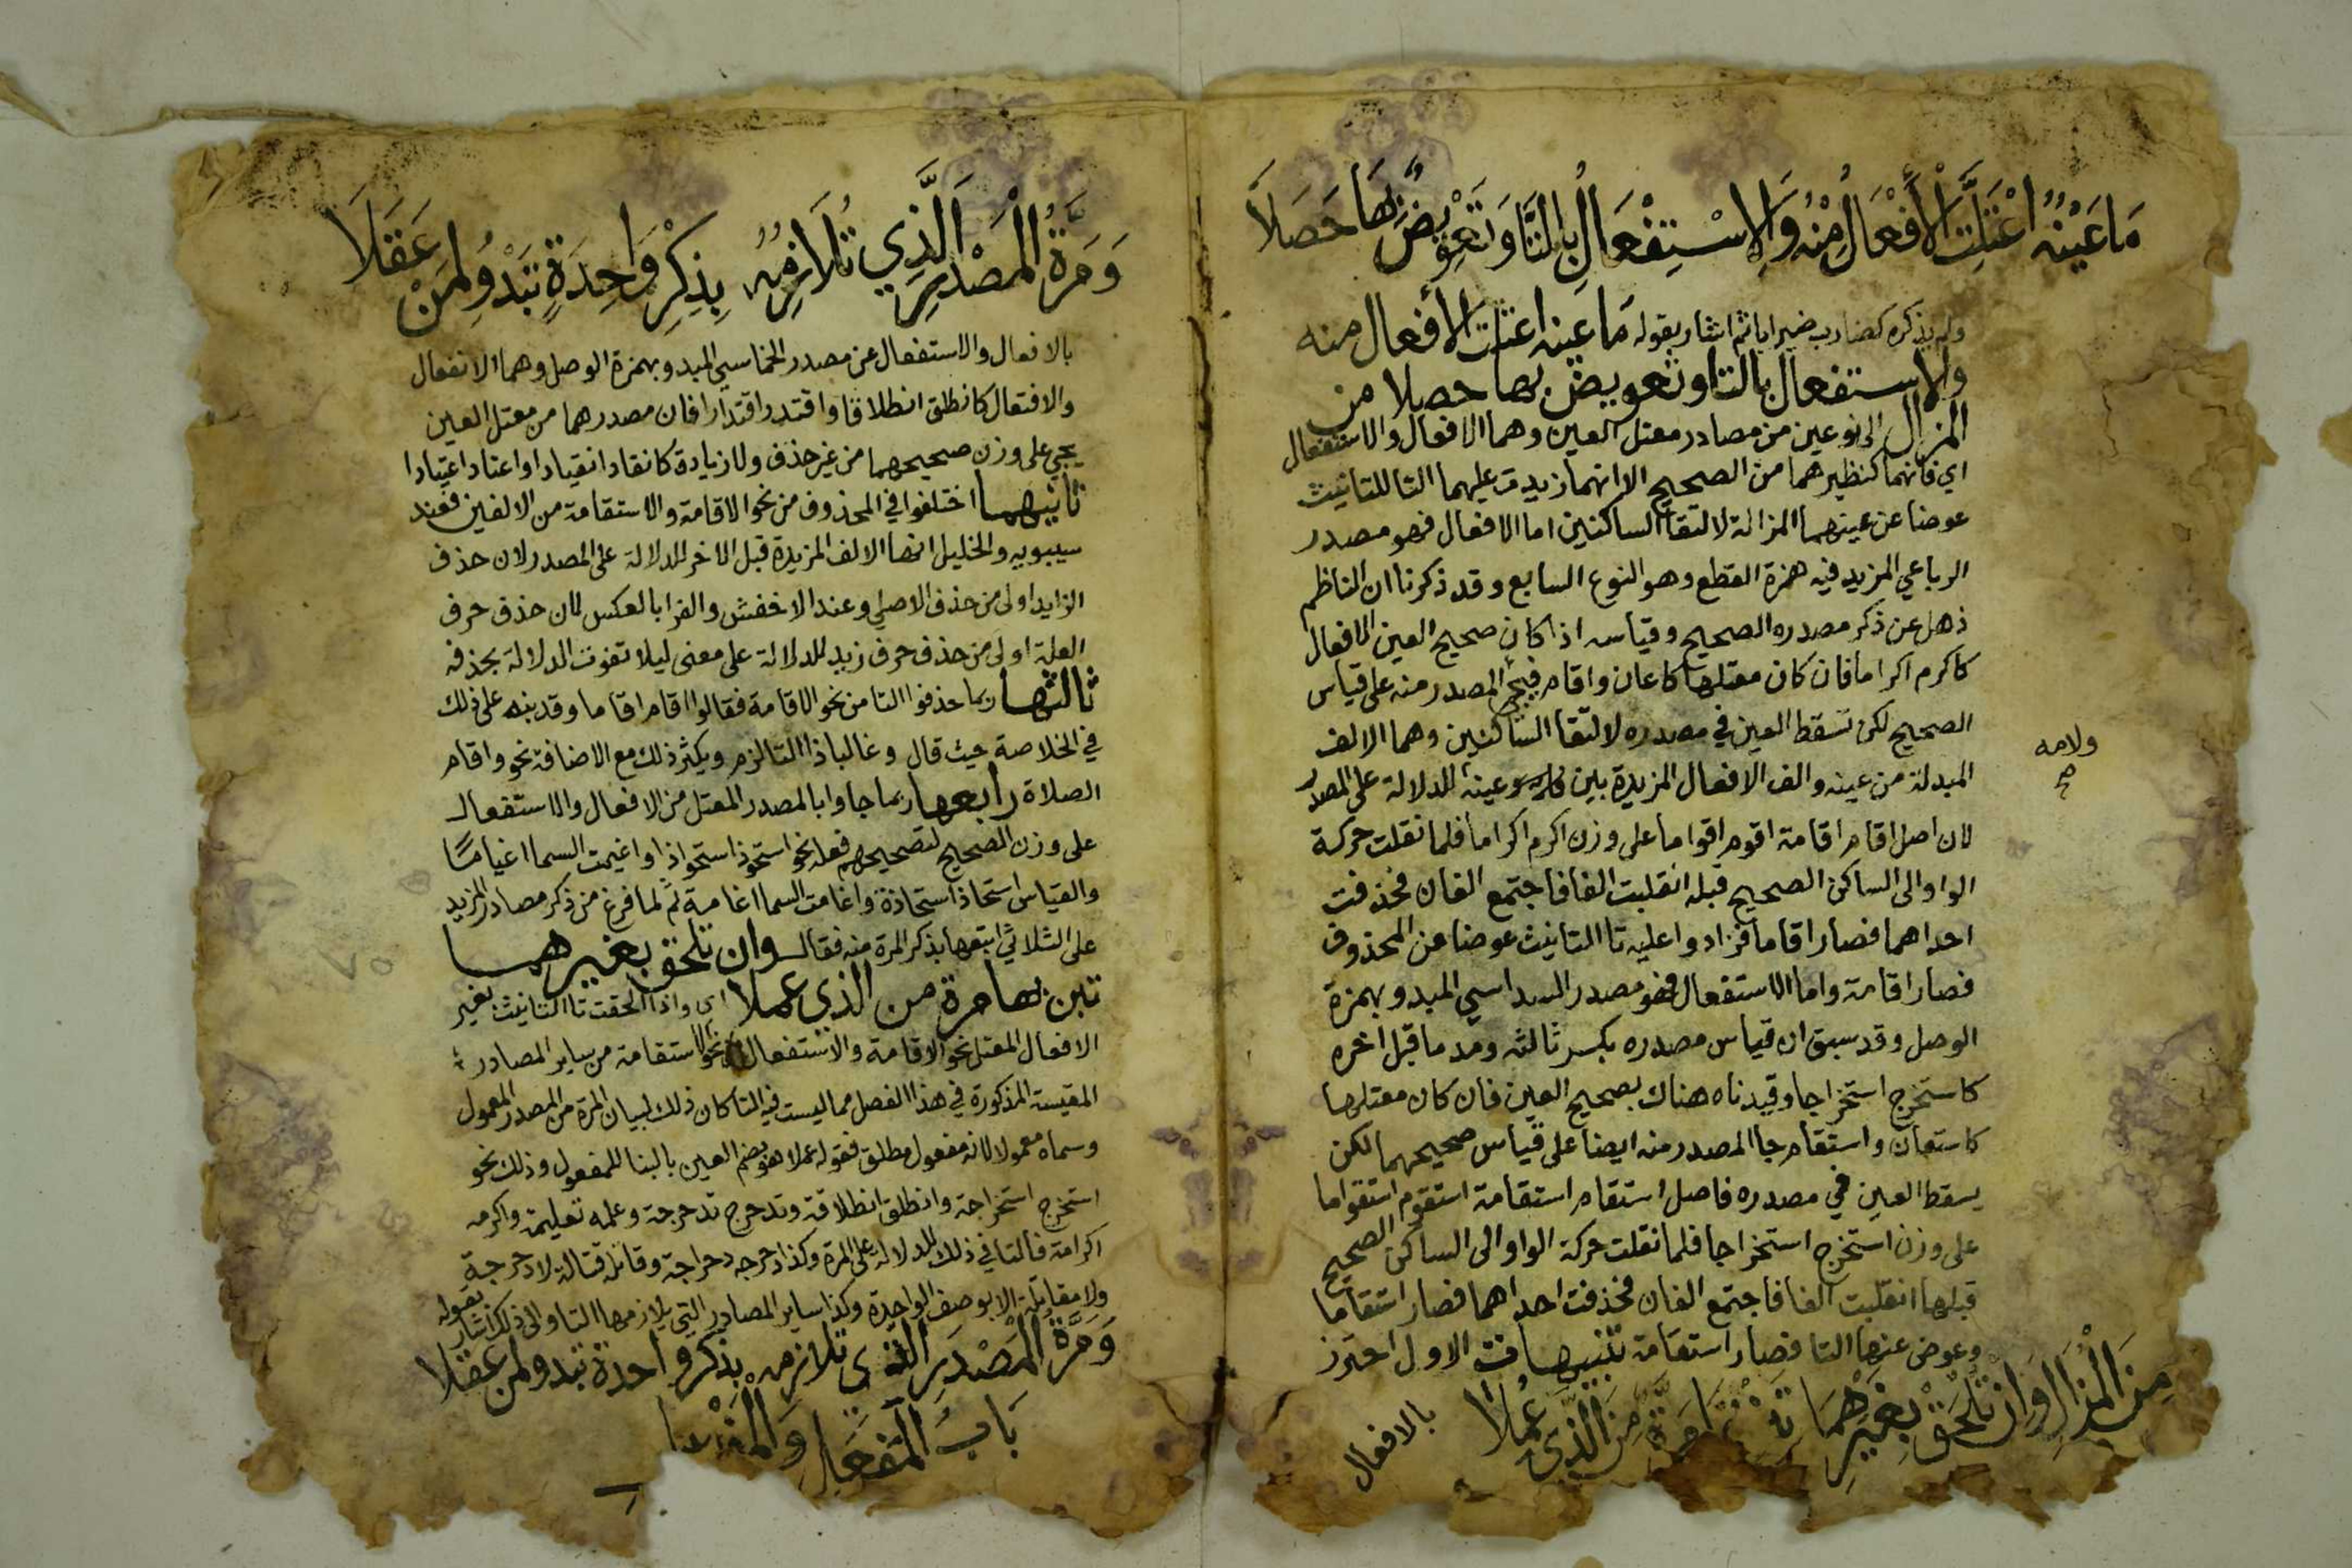 مَا عَيْنُهُ اعْتَلَّتِ الْأَفْعَالُ مِنْهُ وَالِاسْتِفْعَالُ بِالتَّا وَتَعْوِيضٌ بِهَا حَصَلَا
ولم يذكره كضارب ضيرابا ثم اشار بقوله مَا عينه اعتلت الأفعال منه
والاستفعال بالتا وتعويض بها حصلا من
المزال الى نوعين من مصادر معتل العين وهما الافعال والاستفعال
اي فانهما كنظيرهما من الصحيح الا انهما زيدت عليهما التا للتانيث
عوضا عن عينهما المزالة لالتقا الساكنين اما الافعال فهو مصدر
الرباعي المزيد فيه همزة القطع وهو النوع السابع وقد ذكرنا ان الناظم
ذهل عن ذكر مصدره الصحيح وقياسه اذا كان صحيح العين الافعال
كاكرم اكراما فان كان معتلها كاعان واقام فيجي المصدر منه على قياس
الصحيح لكن تسقط العين في مصدره لالتقا الساكنين وهما الالف
المبدلة من عينه والف الافعال المزيدة بين عينه للدلالة على المصدر
ولامه
صح
لان اصل اقام اقامة اقوم اقواما على وزن اكرم اكراما فلما نقلت حركة
الواو الى الساكن الصحيح قبله انقلبت الفا فاجتمع الفان فحذفت
احداهما فصار اقاما فزادوا عليه تا التانيث عوضا عن المحذوف
فصار اقامة واما الاستفعال فهو مصدر السداسي المبدو بهمزة
الوصل وقد سبق ان قياس مصدره بكسر ثالثه ومد ما قبل اخره
كاستخرج استخراجا وقيدناه هناك بصحيح العين فان كان معتلها
كاستعان واستقام جا المصدر منه ايضا على قياس صحيحهما لكن
يسقط العين في مصدره فاصل استقام استقامة استقوم استقواما
على وزن استخرج استخراجا فلما نقلت حركة الواو الى الساكن الصحيح
قبلها انقلبت الفا فاجتمع الفان فحذفت احداهما فصار استقاما
وعوض عنها التا فصار استقامة تنبيهات الاول احترز
مِنَ الْمُزَالِ وَإِنْ تُلْحَقْ بِغَيْرِهِمَا مَرَّةٌ مِنَ الَّذِي عُمِلَا
بالافعال
وَمَرَّةُ الْمَصْدَرِ الَّذِي تُلَازِمُهُ بِذِكْرِ وَاحِدَةٍ تَبْدُو لِمَنْ عَقَلَا
بالافعال والاستفعال عن مصدر الخماسي المبدو بهمزة الوصل وهما الانفعال
والافتعال كانطلق انطلاقا واقتدر اقتدارا فان مصدرهما من معتل العين
يجي على وزن صحيحهما من غير حذف ولا زيادة كانقاد انقيادا واعتاد اعتيادا
ثانيهما اختلفوا في المحذوف من نحو الاقامة والاستقامة من الالفين فعند
سيبويه والخليل انها الالف المزيدة قبل الاخر للدلالة على المصدر لان حذف
الزايد اولى من حذف الاصلي وعند الاخفش والفرا بالعكس لان حذف حرف
العلة اولى من حذف حرف زيد للدلالة على معنى ليلا تفوت الدلالة بحذفه
ثالثها ربما حذفوا التا من نحو الاقامة فقالوا اقام اقاما وقد نبه على ذلك
في الخلاصة حيث قال وغالبا ذا التا لزم ويكثر ذلك مع الاضافة نحو واقام
الصلاة رابعها ربما جاوا بالمصدر المعتل من الافعال والاستفعال
على وزن الصحيح لتصحيحهم فعله نحو استحوذ استحواذا واغيمت السما اغياما
والقياس استحاذ استحاذة واغامت السما اغامة ثم لما فرغ من ذكر مصادر المزيد
على الثلاثي اتبعها بذكر المرة منه فقال وان تلحق بغيرهما
تبن بها مرة من الذي عملا اي واذا الحقت تا التانيث بغير
الافعال المعتل نحو الاقامة والاستفعال نحو الاستقامة من ساير المصادر
المقيسة المذكورة في هذا الفصل مما ليست فيه التا كان ذلك لبيان المرة من المصدر المعمول
وسماه معمولا لانه مفعول مطلق فقوله عملا هو بضم العين بالبنا للمفعول وذلك نحو
استخرج استخراجة وانطلق انطلاقة وتدحرج تدحرجة وعلمه تعليمة واكرمه
اكرامة فالتا في ذلك للدلالة على المرة وكذا دحرجه دحراجة وقاتله قتالة لا دحرجة
ولا مقاتلة الا بوصف الواحدة وكذا ساير المصادر التي يلازمها التا والى ذلك اشار بقوله
وَمَرَّةُ الْمَصْدَرِ الذي تلازمه بذكر واحدة تبدو لمن عقلا
بَابُ الْمَفْعَلِ وَالْمَفْعِل